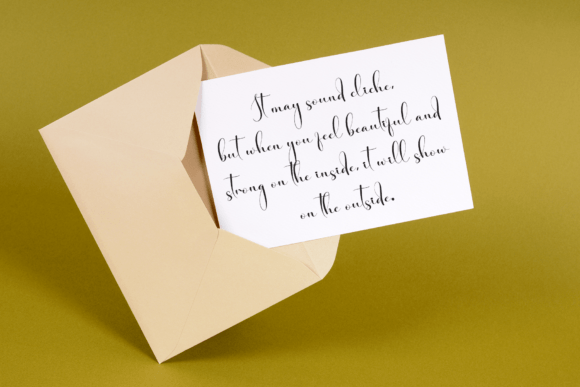 It may sound cliche,
but when you feel beautiful and
strong on the inside, it will show
on the outside.